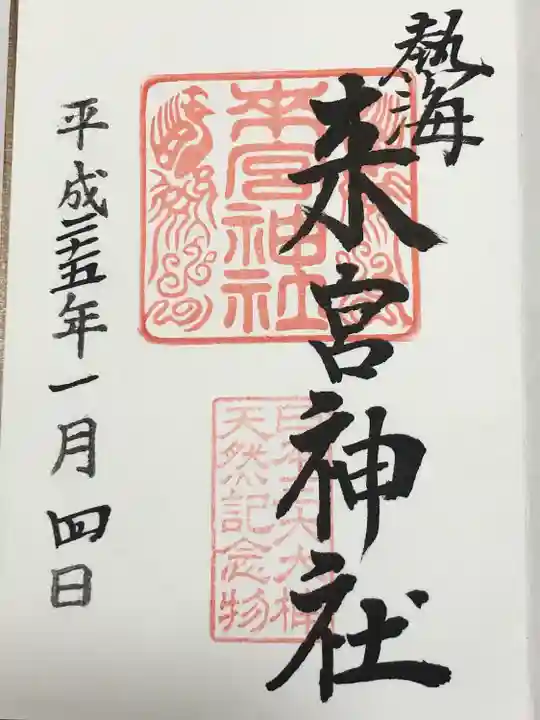 熱海
来宮神社
来宮神社
日本三大樟
天然記念物
平成二十五年一月四日